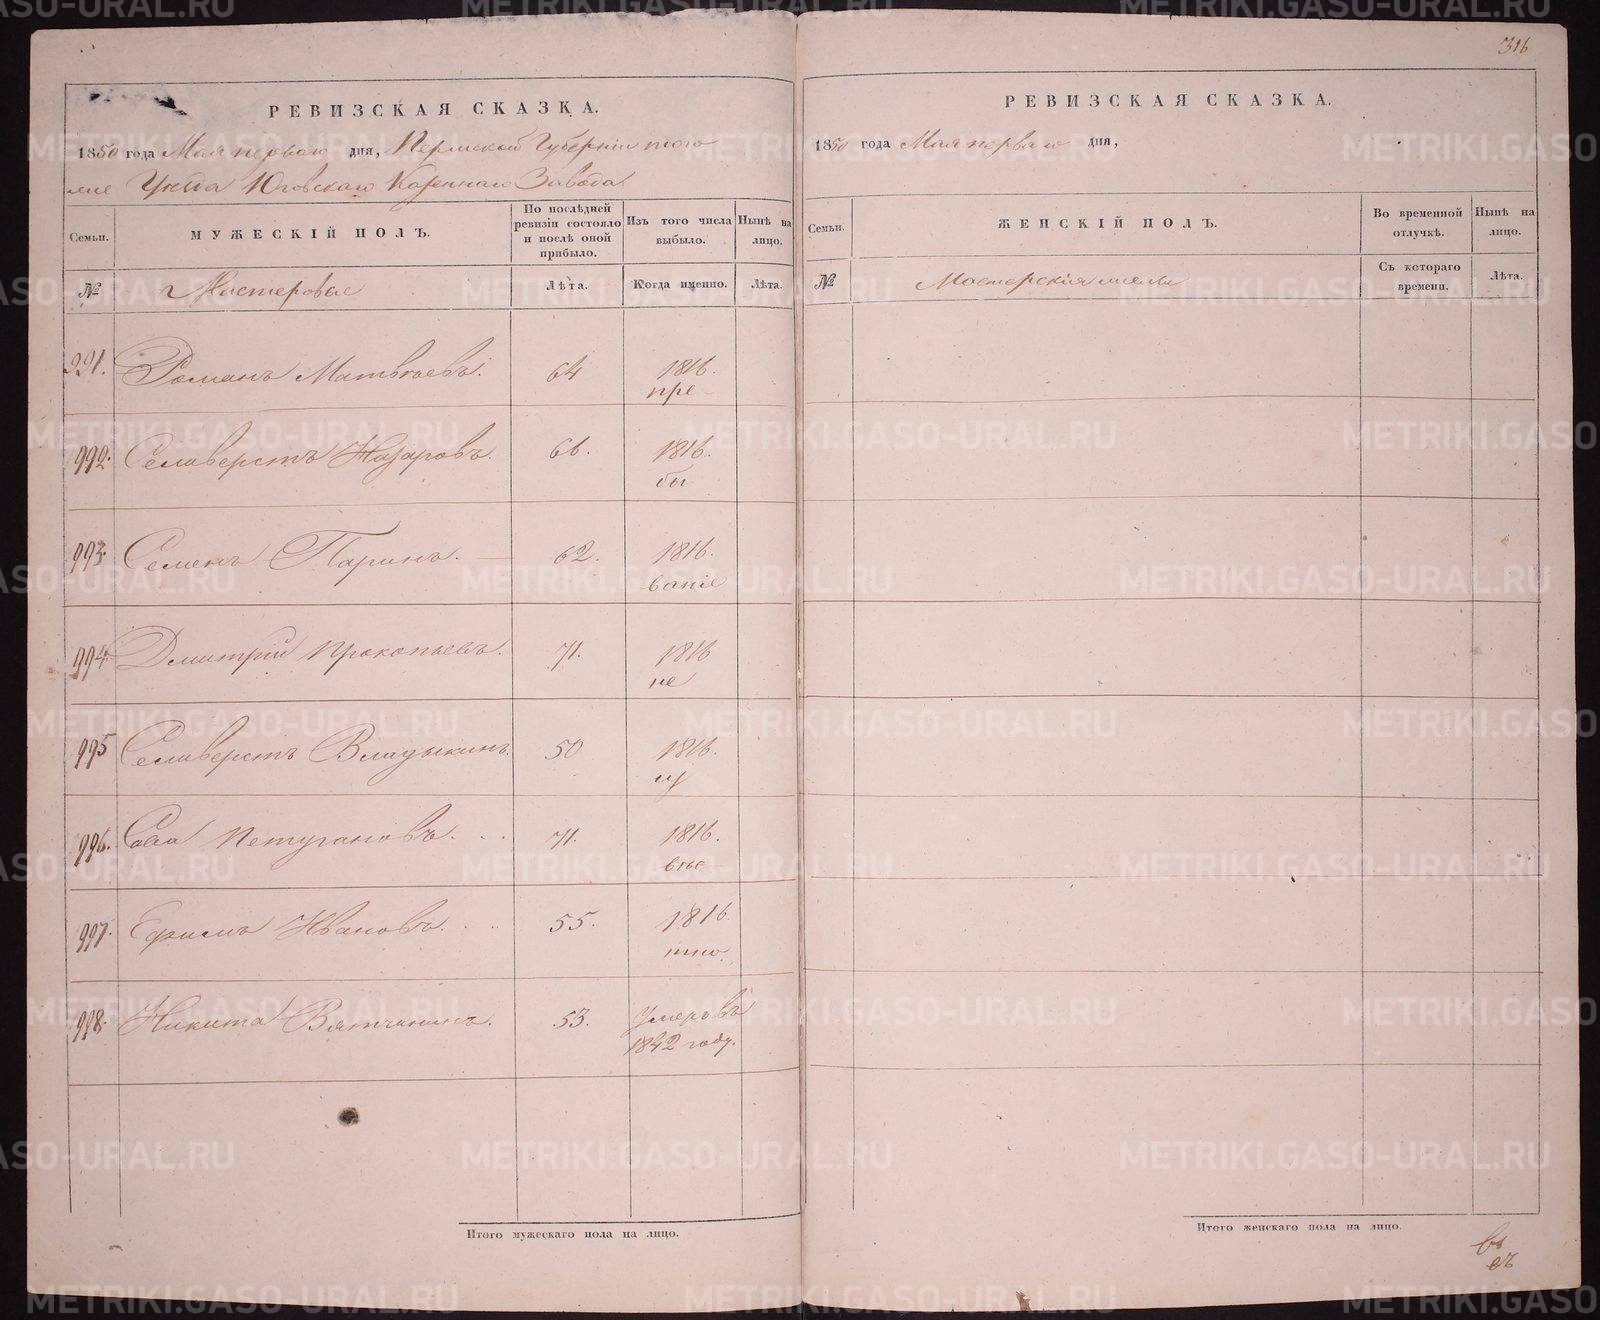 316
РЕВИЗСКАЯ СКАЗКА.
1850 года Мая перваго дня, Пермской Губерніи того
же Уѣзда Юговскаго Казеннаго Завода
Семьи.
МУЖЕСКІЙ ПОЛЪ.
По послѣдней ревизіи состояло и послѣ оной прибыло.
Изъ того числа выбыло.
Нынѣ на лицо.
№
Мастеровые
Лѣта.
Когда именно.
Лѣта.
991. Романъ Матвѣевъ. 64 1816.
пре
992. Селиверстъ Назаровъ. 66. 1816.
бы
993. Семенъ Паринъ. 62. 1816.
ваніе
994. Дмитрій Прокопьевъ. 71. 1816
не
995 Селиверстъ Владыкинъ. 50 1816.
из
996. Сава Петугановъ. . . 71. 1816.
вѣс
997. Ефимъ Ивановъ. . . 55. 1816
тно.
998. Никита Вятчининъ. 53. Умеръ въ
1842 году.
Итого мужескаго пола на лицо.
РЕВИЗСКАЯ СКАЗКА.
1850 года Мая перваго дня,
Семьи.
ЖЕНСКІЙ ПОЛЪ.
Во временной отлучкѣ.
Нынѣ на лицо.
№
Мастерскія жены
Съ котораго времени.
Лѣта.
Итого женскаго пола на лицо.
METRIKI.GASO-URAL.RU